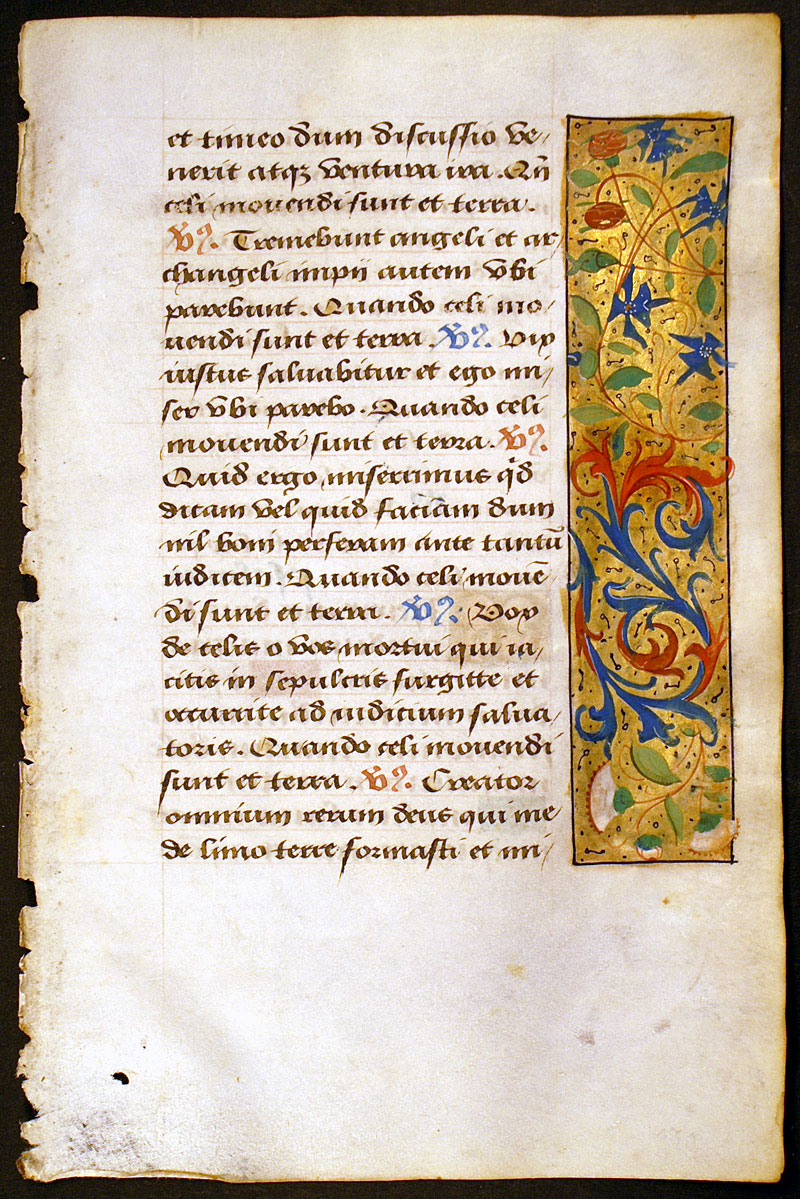 et timeo dum discussio ve-
nerit atqz ventura ira. Qn̄
celi movendi sunt et terra.
V. Tremebunt angeli et ar-
changeli impii autem vbi
parebunt. Quando celi mo-
uendi sunt et terra. V. Vix
iustus saluabitur et ego mi-
ser vbi parebo. Quando celi
mouendi sunt et terra. V.
Quid ergo miserrimus qd
dicam vel quid faciam dum
nil boni perferam ante tantū
iudicem. Quando celi mouē
di sunt et terra. V. Vox
de celis o vos mortui qui ia-
citis in sepulcris surgitte et
occurrite ad iudicium salua-
toris. Quando celi mouendi
sunt et terra. V. Creator
omnium rerum deus qui me
de limo terre formasti et mi-